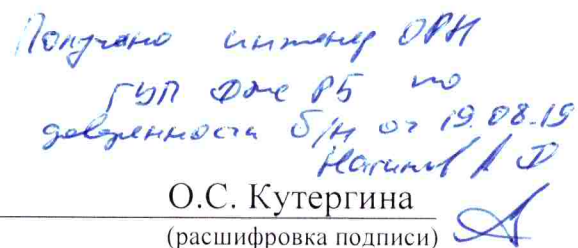 Получено инженер ОРН
ГУП ФЖС РБ по
доверенности б/н от 19.08.19
О.С. Кутергина
(расшифровка подписи)